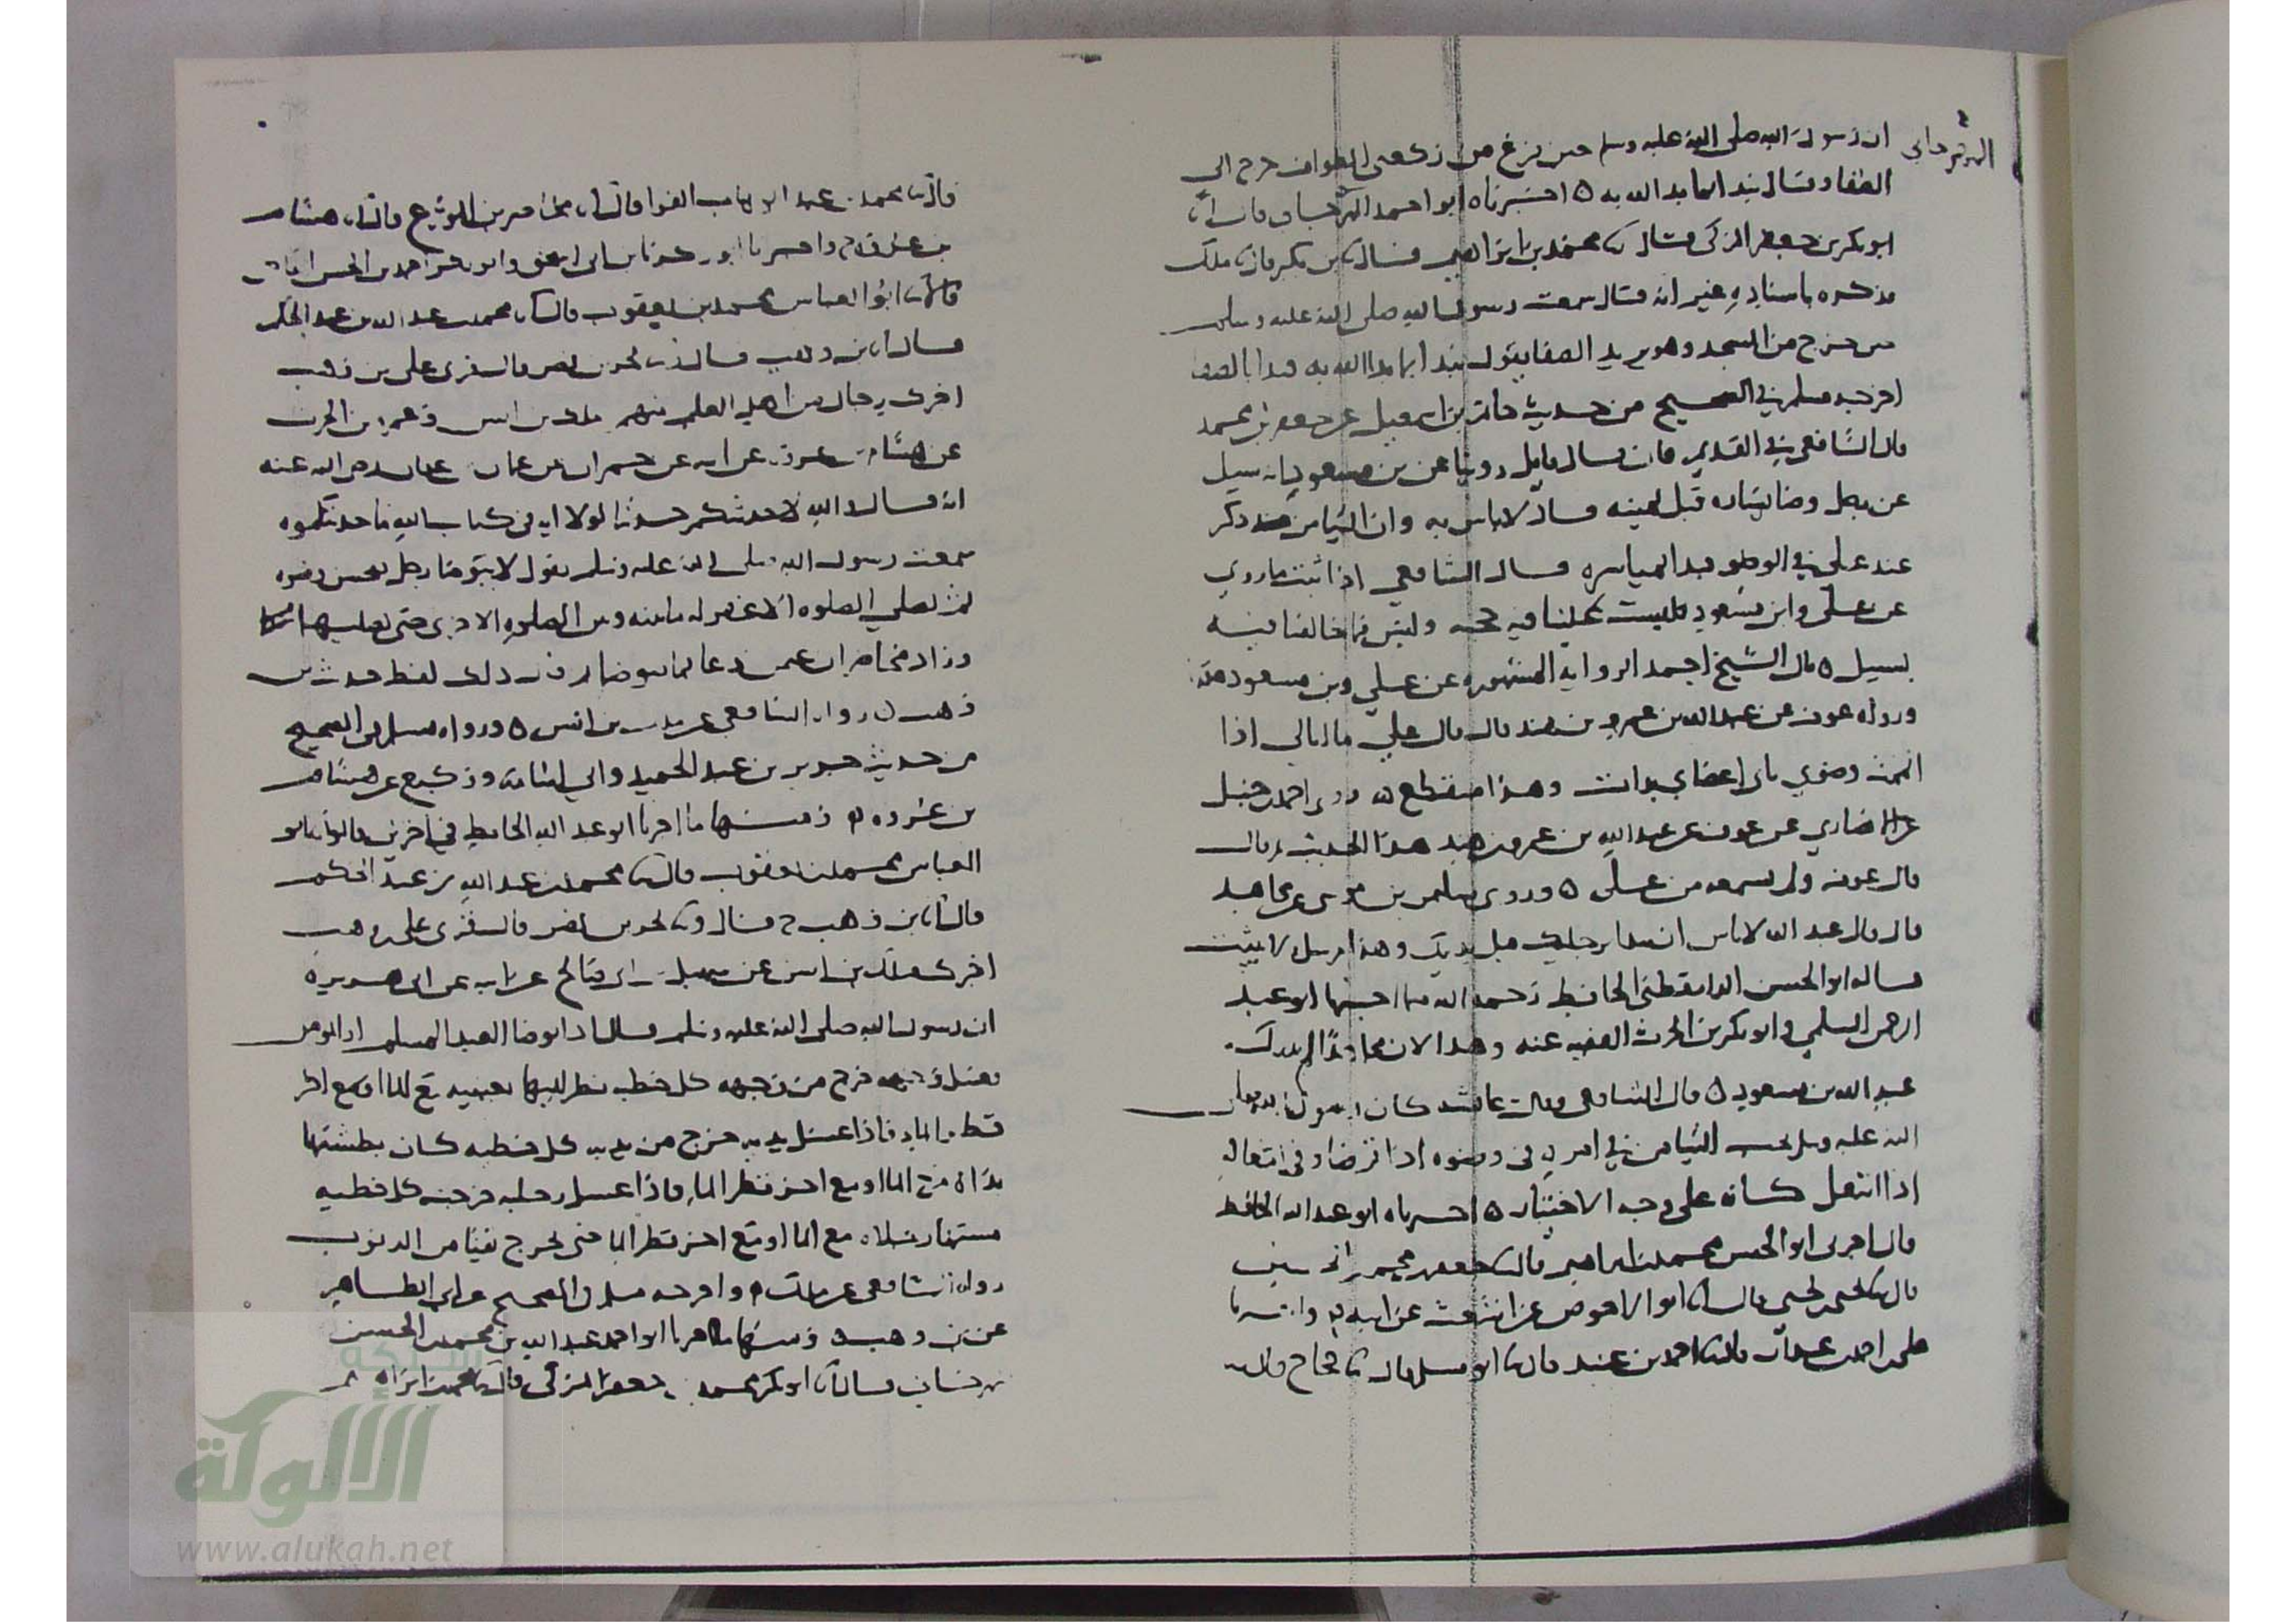 المهرجاني
ان رسول الله صلى الله عليه وسلم حين فرغ من ركعتي الطواف خرج الى
الصفا وقال نبدا بما بدا الله به ٥ اخبرناه ابو احمد المهرجاني قال انا
ابو بكر بن جعفر المزكي قال ثنا محمد بن ابراهيم قال ثنا بن بكير قال ثنا ملك
فذكره باسناده غير انه قال سمعت رسول الله صلى الله عليه وسلم
حين خرج من المسجد وهو يريد الصفا يقول نبدا بما بدا الله به فبدا بالصفا
اخرجه مسلم في الصحيح من حديث حاتم بن اسمعيل عن جعفر بن محمد
قال الشافعي في القديم فان قال قايل روينا عن بن مسعود انه سيل
عن رجل وضا يساره قبل يمينه قال لا باس به وان التيامن ذكر
عند علي في الوضو فبدا بمياسره قال الشافعي اذا ثبت ما روي
عن علي وابن مسعود فليست علينا فيه حجه وليس ما خالفنا فيه
بسبيل ٥ قال الشيخ احمد الرواية المشهوره عن علي وبن مسعود
ورواه عوف عن عبد الله بن عمرو بن هند قال قال علي ما ابالي اذا
اتممت وضوي باي اعضاي بدات وهذا منقطع ٥ روى احمد بن حنبل
عن الانصاري عن عوف عن عبد الله بن عمرو بن هند هذا الحديث قال
قال عوف ولم يسمعه من علي ٥ وروى سليمن بن موسى عن مجاهد
قال قال عبد الله لا باس ان تبدا برجليك قبل يديك وهذا مرسل لا يثبت
قاله ابو الحسن الدارقطني الحافظ رحمه الله فيما اخبرنا ابو عبد
الرحمن السلمي وابو بكر بن الحرث الفقيه عنه وهذا لان مجاهدا لم يدرك
عبد الله بن مسعود ٥ قال الشافعي وقالت عائشه كان رسول الله صلى
الله عليه وسلم يحب التيامن في امره في وضوه اذا توضا وفي انتعاله
اذا انتعل كانه على وجه الاختيار ٥ اخبرناه ابو عبد الله الحافظ
قال اخبرني ابو الحسن محمد بن ابراهيم قال ثنا جعفر بن محمد بن الحسين
قال ثنا يحيى بن يحيى قال انا ابو الاحوص عن اشعث عن ابيه ح واخبرنا
علي بن احمد بن عبدان قال انا احمد بن عبيد قال ثنا ابو مسلم قال ثنا حجاج قال ثنا
قال ثنا محمد بن عبد الوهاب الفرا قال انا محاضر بن المورع قال ثنا هشام
بن عروة ح واخبرنا ابو زكريا بن ابي اسحق وابو بكر احمد بن الحسن القاضي
قالا ثنا ابو العباس محمد بن يعقوب قال انا محمد بن عبد الله بن عبد الحكم
قال انا بن وهب قال ونا بحر بن نصر قال قرى على بن وهب
اخبرك رجال من اهل العلم منهم ملك بن انس وعمرو بن الحرث
عن هشام بن عروة عن ابيه عن حمران عن عثمان بن عفان رضي الله عنه
انه قال والله لاحدثنكم حديثا لولا ايه في كتاب الله ما حدثتكموه
سمعت رسول الله صلى الله عليه وسلم يقول لا يتوضا رجل يحسن وضوه
ثم يصلي الصلوه الا غفر له ما بينه وبين الصلوه الاخرى حتى يصليها
وزاد محاضر ان عثمن دعا بما فتوضا ثم قال ذلك لفظ حديث بن
وهب ٥ رواه الشافعي عن ملك بن انس ٥ ورواه مسلم في الصحيح
من حديث جرير بن عبد الحميد وابي اسامة ووكيع عن هشام
بن عروه ٥ ومنها ما اخبرنا ابو عبد الله الحافظ في اخرين قالوا ثنا ابو
العباس محمد بن يعقوب قال انا محمد بن عبد الله بن عبد الحكم
قال انا بن وهب ح قال ونا بحر بن نصر قال قرى على بن وهب
اخبرك ملك بن انس عن سهيل بن ابي صالح عن ابيه عن ابي هريره
ان رسول الله صلى الله عليه وسلم قال اذا توضا العبد المسلم او المومن
فغسل وجهه خرج من وجهه كل خطيه نظر اليها بعينيه مع الما او مع اخر
قطر الما فاذا غسل يديه خرج من يديه كل خطيه كان بطشتها
يداه مع الما او مع اخر قطر الما فاذا غسل رجليه خرجت كل خطيه
مشتها رجلاه مع الما او مع اخر قطر الما حتى يخرج نقيا من الذنوب
رواه الشافعي عن ملك ٥ واخرجه مسلم في الصحيح عن ابي الطاهر
عن بن وهب ٥ ومنها ما اخبرنا ابو احمد عبد الله بن محمد بن الحسن
المهرجاني قال انا ابو بكر محمد بن جعفر المزكي قال ثنا محمد بن ابراهيم
شبكة
الألوكة
www.alukah.net